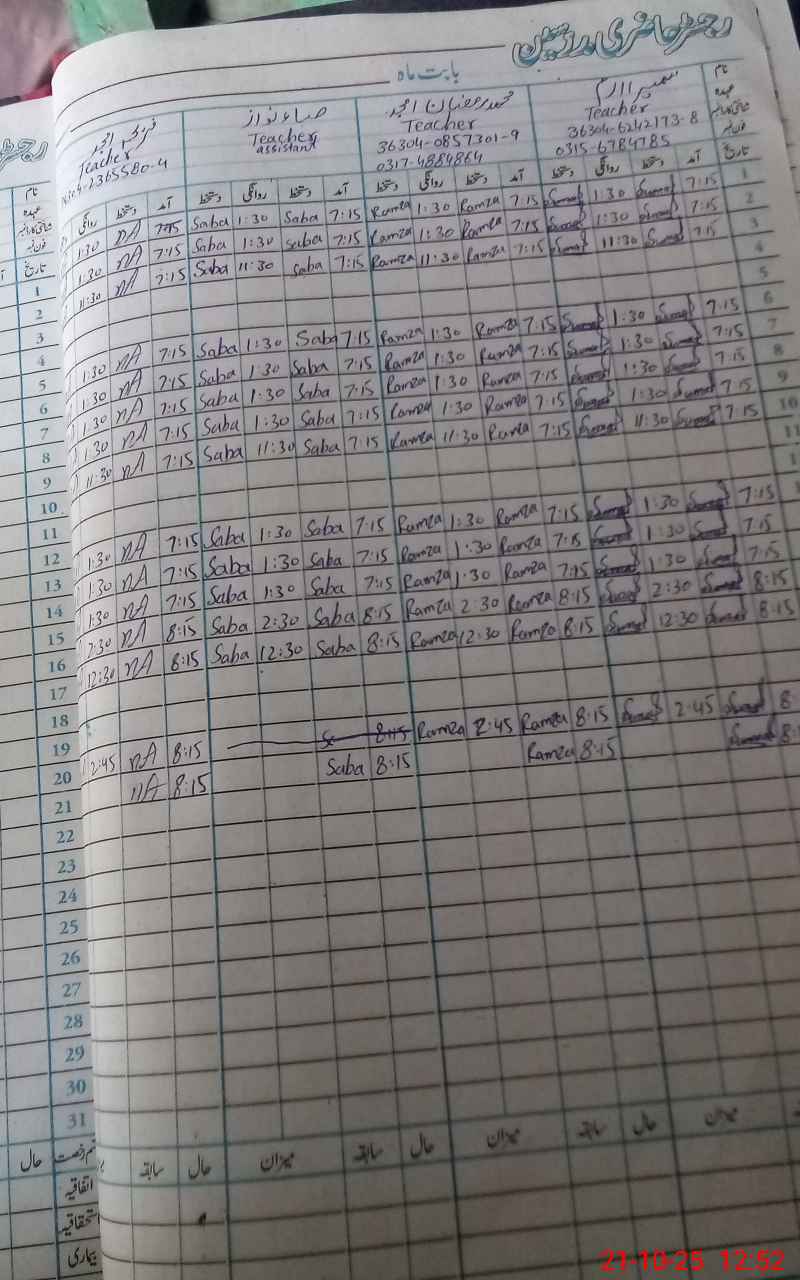 رجسٹر حاضری مدرسین
بابت ماہ
نام
عہدہ
شناختی کارڈ نمبر
فون نمبر
تاریخ
سمیرا ارم
Teacher
36304-6242173-8
0315-6784785
محمد رمضان امجد
Teacher
36304-0857301-9
0317-4884864
صباء نواز
Teacher
assistant
Teacher
36304-2365580-4
آمد دستخط روانگی دستخط آمد دستخط روانگی دستخط آمد دستخط روانگی دستخط آمد دستخط روانگی
1:30 nA 7:15 Saba 1:30 Saba 7:15 Ramza 1:30 Ramza 7:15 Sumed 1:30 Sumed 7:15 1
1:30 nA 7:15 Saba 1:30 Saba 7:15 Ramza 1:30 Ramza 7:15 Sumed 1:30 Sumed 7:15 2
11:30 nA 7:15 Saba 11:30 Saba 7:15 Ramza 11:30 Ramza 7:15 Sumed 11:30 Sumed 7:15 3
4
5
1:30 nA 7:15 Saba 1:30 Saba 7:15 Ramza 1:30 Ramza 7:15 Sumed 1:30 Sumed 7:15 6
1:30 nA 7:15 Saba 1:30 Saba 7:15 Ramza 1:30 Ramza 7:15 Sumed 1:30 Sumed 7:15 7
1:30 nA 7:15 Saba 1:30 Saba 7:15 Ramza 1:30 Ramza 7:15 Sumed 1:30 Sumed 7:15 8
1:30 nA 7:15 Saba 1:30 Saba 7:15 Ramza 1:30 Ramza 7:15 Sumed 1:30 Sumed 7:15 9
11:30 nA 7:15 Saba 11:30 Saba 7:15 Ramza 11:30 Ramza 7:15 Sumed 11:30 Sumed 7:15 10
11
1:30 nA 7:15 Saba 1:30 Saba 7:15 Ramza 1:30 Ramza 7:15 Sumed 1:30 Sumed 7:15
1:30 nA 7:15 Saba 1:30 Saba 7:15 Ramza 1:30 Ramza 7:15 Sumed 1:30 Sumed 7:15
1:30 nA 7:15 Saba 1:30 Saba 7:15 Ramza 1:30 Ramza 7:15 Sumed 1:30 Sumed 7:15
2:30 nA 8:15 Saba 2:30 Saba 8:15 Ramza 2:30 Ramza 8:15 Sumed 2:30 Sumed 8:15
12:30 nA 8:15 Saba 12:30 Saba 8:15 Ramza 12:30 Ramza 8:15 Sumed 12:30 Sumed 8:15
2:45 nA 8:15 Sa 8:15 Ramza 2:45 Ramza 8:15 Sumed 2:45 Sumed 8
nA 8:15 Saba 8:15 Ramza 8:15 Sumed 8:
سابقہ حال میزان سابقہ حال میزان سابقہ حال میزان
نام
عہدہ
تاریخ
1
2
3
4
5
6
7
8
9
10
11
12
13
14
15
16
17
18
19
20
21
22
23
24
25
26
27
28
29
30
31
قسم رخصت حال
اتفاقیہ
استحقاقیہ
بیماری
21-10-25 12:52